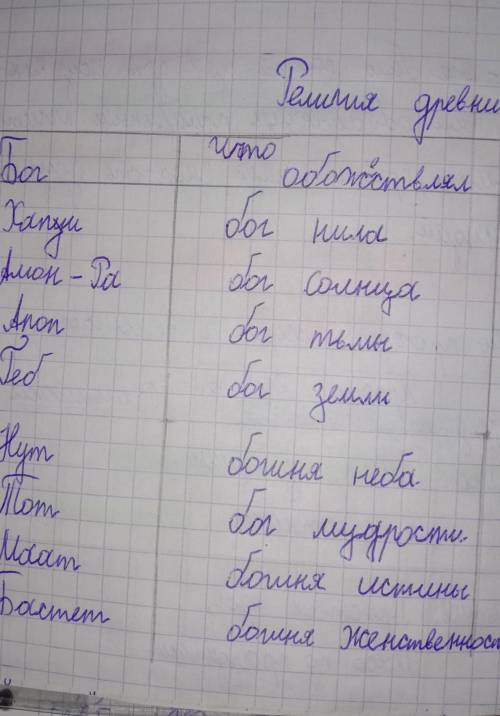 Религия древни
Бог Что обожествлял
Хапи бог нила
Амон-Ра бог солнца
Апоп бог тьмы
Геб бог земли
Нут богиня неба
Тот бог мудрости.
Маат богиня истины
Бастет богиня женственност